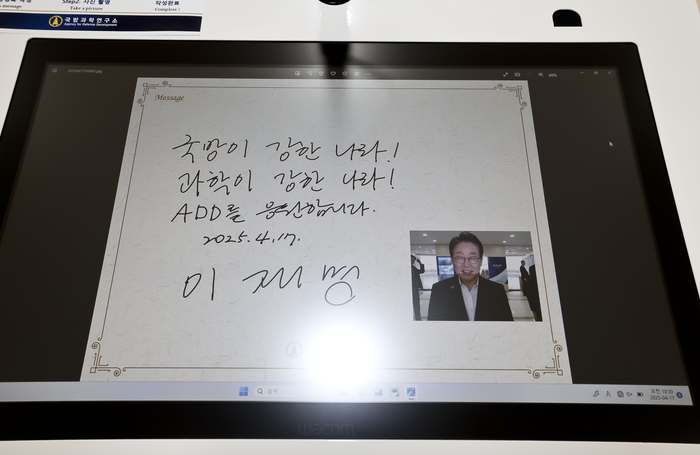 Step2. 사진 촬영
작성완료
message
Take a picture
Complete !
국방과학연구소
Agency for Defense Development
Message
국방이 강한 나라!
과학이 강한 나라!
ADD를 응원합니다.
2025.4.17.
이재명
검색
오전 10:00
2025-04-17
wacom